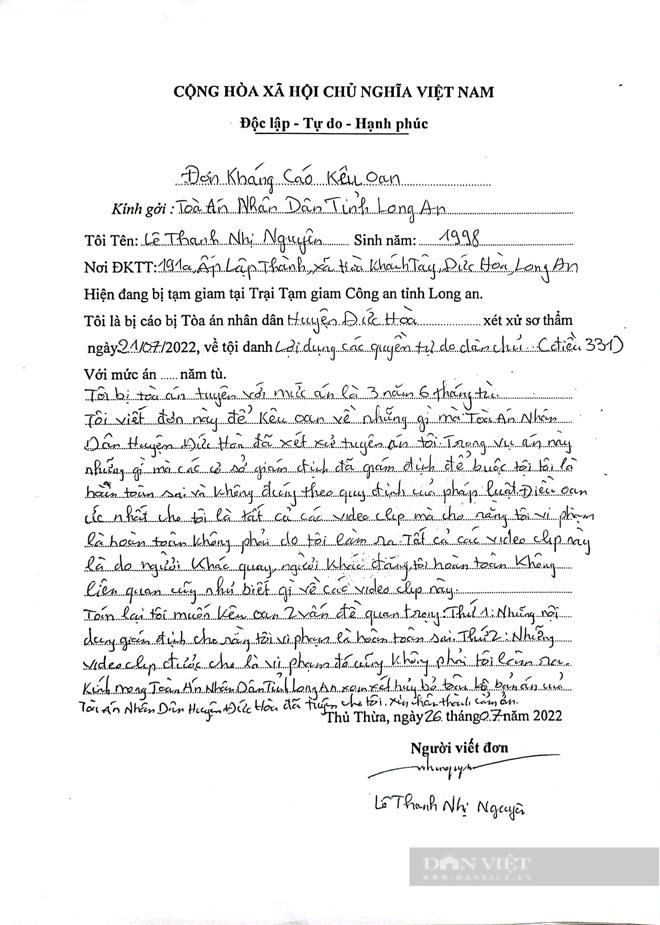 CỘNG HÒA XÃ HỘI CHỦ NGHĨA VIỆT NAM
Độc lập - Tự do - Hạnh phúc
Đơn Kháng Cáo Kêu Oan
Kính gởi: Toà Án Nhân Dân Tỉnh Long An
Tôi Tên: Lê Thanh Nhị Nguyên Sinh năm: 1998
Nơi ĐKTT: 191a, Ấp Lập Thành, xã Hoà Khánh Tây, Đức Hòa, Long An
Hiện đang bị tạm giam tại Trại Tạm giam Công an tỉnh Long an.
Tôi là bị cáo bị Tòa án nhân dân Huyện Đức Hoà xét xử sơ thẩm
ngày 21/07/2022, về tội danh Lợi dụng các quyền tự do dân chủ... (điều 331)
Với mức án ...... năm tù.
Tôi bị toà án tuyên với mức án là 3 năm 6 tháng tù.
Tôi viết đơn này để kêu oan về những gì mà Toà Án Nhân
Dân Huyện Đức Hoà đã xét xử tuyên án tôi. Trong vụ án này
những gì mà các cơ sở giám định đã giám định để buộc tội tôi là
hoàn toàn sai và không đúng theo quy định của pháp luật. Điều oan
ức nhất cho tôi là tất cả các video clip mà cho rằng tôi vi phạm
là hoàn toàn không phải do tôi làm ra. Tất cả các video clip này
là do người khác quay, người khác đăng, tôi hoàn toàn không
liên quan cũng như biết gì về các video clip này.
Tóm lại tôi muốn kêu oan 2 vấn đề quan trọng. Thứ 1: Những nội
dung giám định cho rằng tôi vi phạm là hoàn toàn sai. Thứ 2: Những
video clip được cho là vi phạm đó cũng không phải tôi làm ra.
Kính mong Toàn Án Nhân Dân Tỉnh Long An xem xét hủy bỏ toàn bộ bản án của
Toà Án Nhân Dân Huyện Đức Hoà đã tuyên cho tôi. Xin chân thành cảm ơn.
Thủ Thừa, ngày 26 tháng 0.7 năm 2022
Người viết đơn
Lê Thanh Nhị Nguyên
DÂN VIỆT
WWW.DANVIET.VN